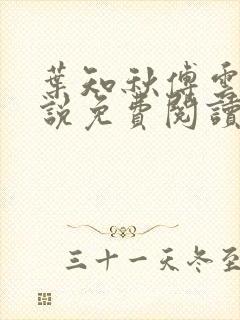 葉知秋傅雲
說免費閱讀
三十一天冬至